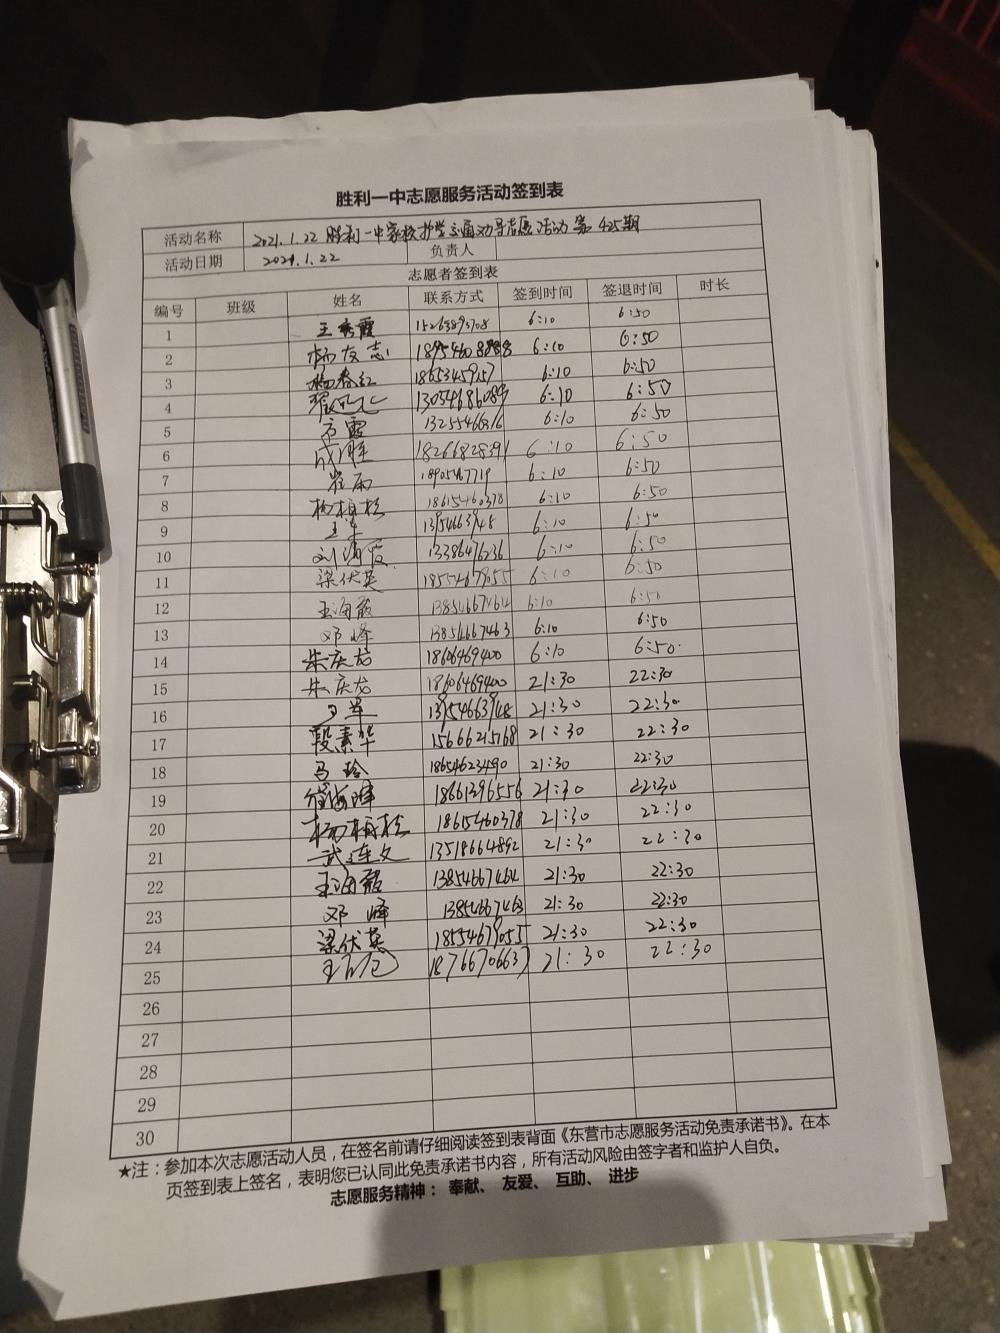 胜利一中志愿服务活动签到表
活动名称 2021.1.22 胜利一中家校护学交通劝导志愿活动 第425期
活动日期 2021.1.22 负责人
志愿者签到表
编号 班级 姓名 联系方式 签到时间 签退时间 时长
1 王秀霞 15263893708 6:10 6:50
2 杨友志 18954608888 6:10 6:50
3 杨春红 18653459157 6:10 6:50
4 13054686089 6:10 6:50
5 方霞 13255466316 6:10 6:50
6 成胜 18266828391 6:10 6:50
7 崔雨 18905467719 6:10 6:50
8 杨梅松 18615460378 6:10 6:50
9 王军 13954663948 6:10 6:50
10 刘清霞 13386476236 6:10 6:50
11 梁伏英 18554679055 6:10 6:50
12 王海霞 13854667464 6:10 6:50
13 邓峰 13854667463 6:10 6:50
14 朱庆龙 18606469400 6:10 6:50
15 朱庆龙 18606469400 21:30 22:30
16 王军 13954663948 21:30 22:30
17 段素华 15666215768 21:30 22:30
18 马玲 18654623490 21:30 22:30
19 18661396556 21:30 22:30
20 杨梅松 18615460378 21:30 22:30
21 武连文 13518664892 21:30 22:30
22 王海霞 13854667464 21:30 22:30
23 邓峰 13854667463 21:30 22:30
24 梁伏英 18554679055 21:30 22:30
25 18766706637 21:30 22:30
26
27
28
29
30
★注：参加本次志愿活动人员，在签名前请仔细阅读签到表背面《东营市志愿服务活动免责承诺书》。在本
页签到表上签名，表明您已认同此免责承诺书内容，所有活动风险由签字者和监护人自负。
志愿服务精神： 奉献、 友爱、 互助、 进步